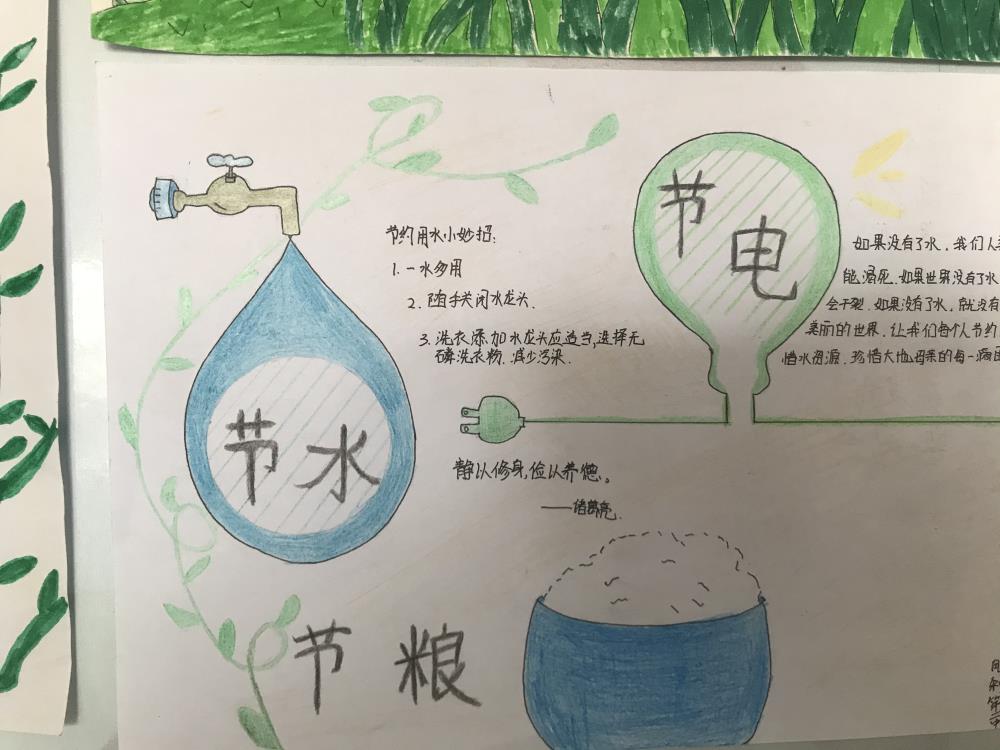 节水
节约用水小妙招:
1.一水多用
2.随手关闭水龙头.
3.洗衣添加水龙头应适当,选择无
磷洗衣粉.减少污染.
节电
如果没有了水,我们人类
能渴死.如果世界没有了水
会干裂.如果没有了水.就没有
美丽的世界.让我们每个人节约
惜水资源.珍惜大地母亲的每一滴
静以修身,俭以养德。
——诸葛亮.
节粮